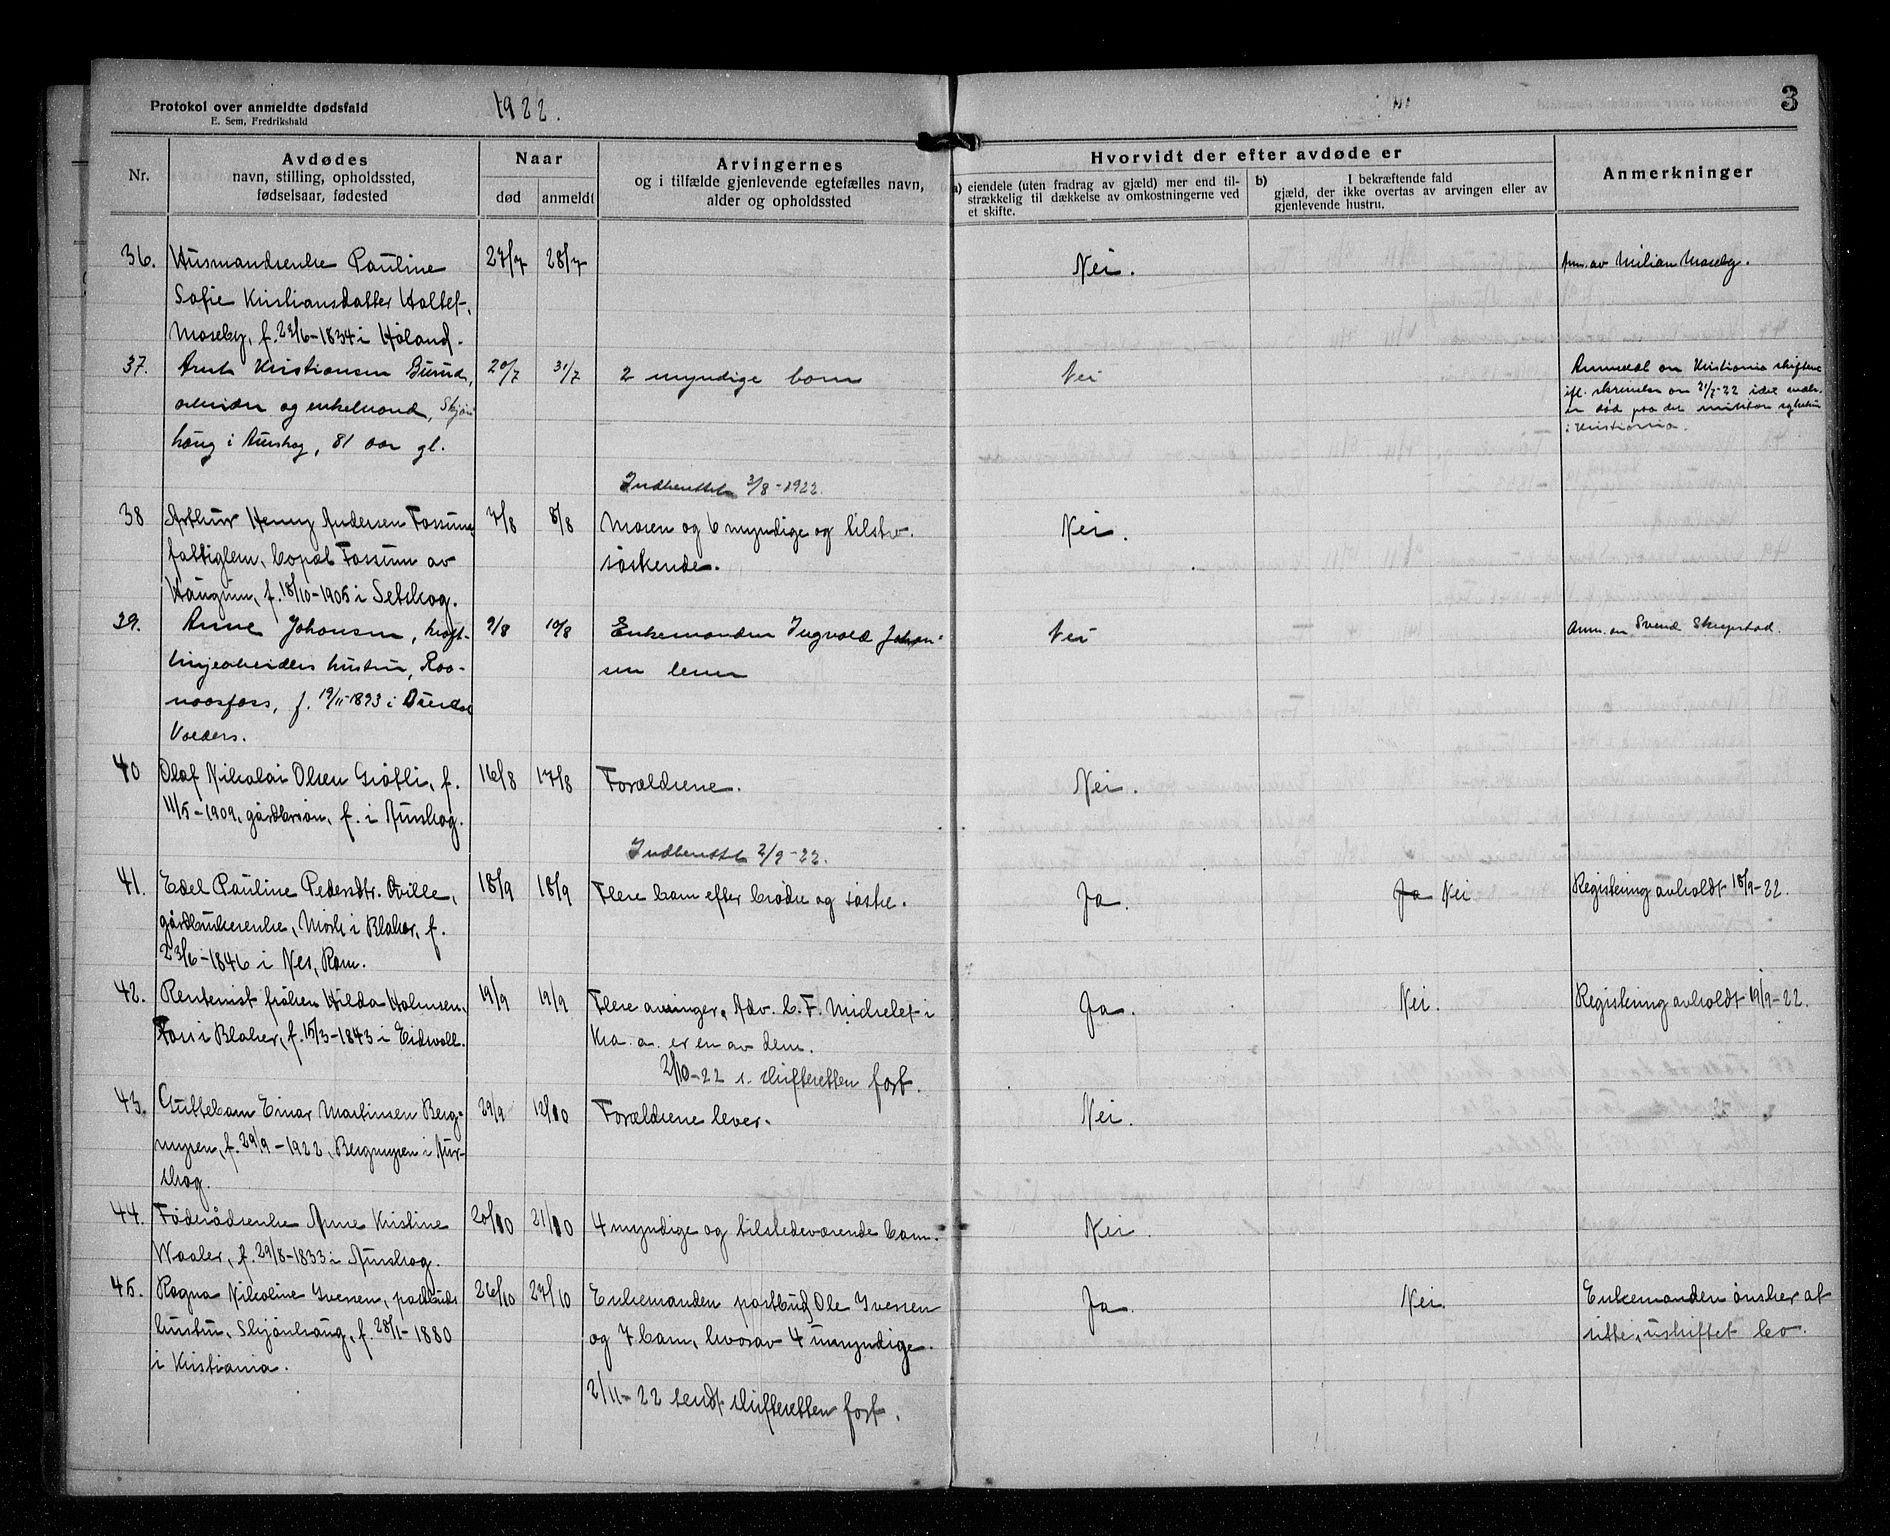 Protokol over anmeldte dødsfald
E. Sem, Fredrikshald
1922.
3
Nr.
Avdødes
navn, stilling, opholdssted,
fødselsaar, fødested
Naar
død
anmeldt
Arvingernes
og i tilfælde gjenlevende egtefælles navn,
alder og opholdssted
Hvorvidt der efter avdøde er
a) eiendele (uten fradrag av gjæld) mer end til-
strækkelig til dækkelse av omkostningerne ved
et skifte.
b) I bekræftende fald
gjæld, der ikke overtas av arvingen eller av
gjenlevende hustru.
Anmerkninger
36. Husmandsenke Pauline 27/7 28/7 Nei. Anm. av Milian Moseby.
Sofie Kristiansdatter Holtet-
Moseby, f. 23/6-1834 i Høland.
37. Kristiansen 20/7 31/7 2 myndige barn Nei Anmeldt Kristiania skifteret
arbeider og enkemand, Skjøn- efl. skrivelse 21/7-22 idet
haug i Aurskog, 81 aar gl. død paa det militære sykehus
i Kristiania.
Indberettet 2/8-1922.
38 Arthur Henry Andersen Fossum, 7/8 8/8 Moren og 6 myndige og tilstv. Nei.
fattiglem, Fossum av søskende.
Haugrim, f. 18/10-1905 i Setskog.
39. Anne Johansen, kraft- 9/8 10/8 Enkemanden Ingvald Johan- Nei Anm. Svend Skrepstad.
linjearbeiders hustru, Raa- sen lever
naasfoss, f. 19/11-1893 i
Valders.
40 Olaf Nikolai Olsen Grøtli, f. 16/8 17/8 Forældrene. Nei.
11/5-1909, gårdbrsøn, f. i Aurskog.
Indberettet 2/9-22.
41. Edel Pauline Pedersdtr. Oville, 18/9 18/9 Flere barn efter brødre og søstre. Ja. Ja Nei Registering avholdt 18/9-22.
gårdbrukerenke, Mork i Blaker, f.
23/6-1846 i Nes, Rom.
42. Rentenist frøken Hilda Holmsen, 19/9 19/9 Flere arvinger. Adv. C. F. Michelet i Ja. Nei. Registering avholdt 19/9-22.
Foss i Blaker, f. 15/3-1843 i Eidsvoll. Kra. a. er en av dem.
2/10-22 s. skifteretten fort.
43. Guttebarn Einar Martinsen Berg- 29/9 12/10 Forældrene lever. Nei.
myren, f. 29/9-1922, Bergmyren i Aur-
skog.
44. Føderådsenke Anne Kristine 20/10 21/10 4 myndige og tilstedeværende barn. Nei.
Waaler, f. 29/8-1833 i Aurskog.
45. Ragna Nikoline Iversen, postbuds 26/10 27/10 Enkemanden postbud Ole Iversen Ja. Nei. Enkemanden ønsker at
hustru, Skjønhaug, f. 28/1-1880 og 7 barn, hvorav 4 umyndige. sitte i uskiftet bo.
i Kristiania.
2/11-22 sendt skifteretten fort.